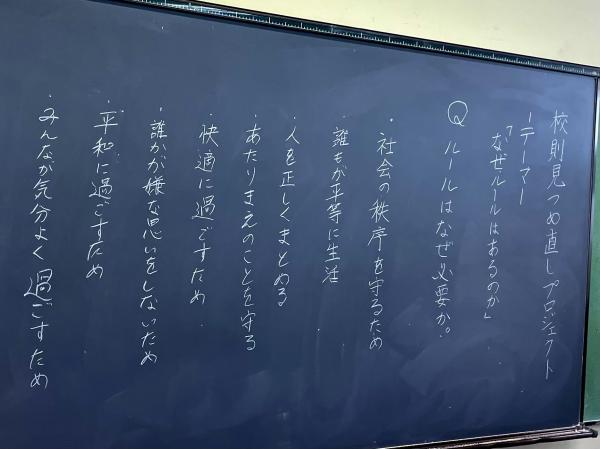 校則見つめ直しプロジェクト
ーテーマー
「なぜルールはあるのか」
Q ルールはなぜ必要か。
・社会の秩序を守るため
・誰もが平等に生活
・人を正しくまとめる
・あたりまえのことを守る
・快適に過ごすため
・誰かが嫌な思いをしないため
・平和に過ごすため
・みんなが気分よく過ごすため